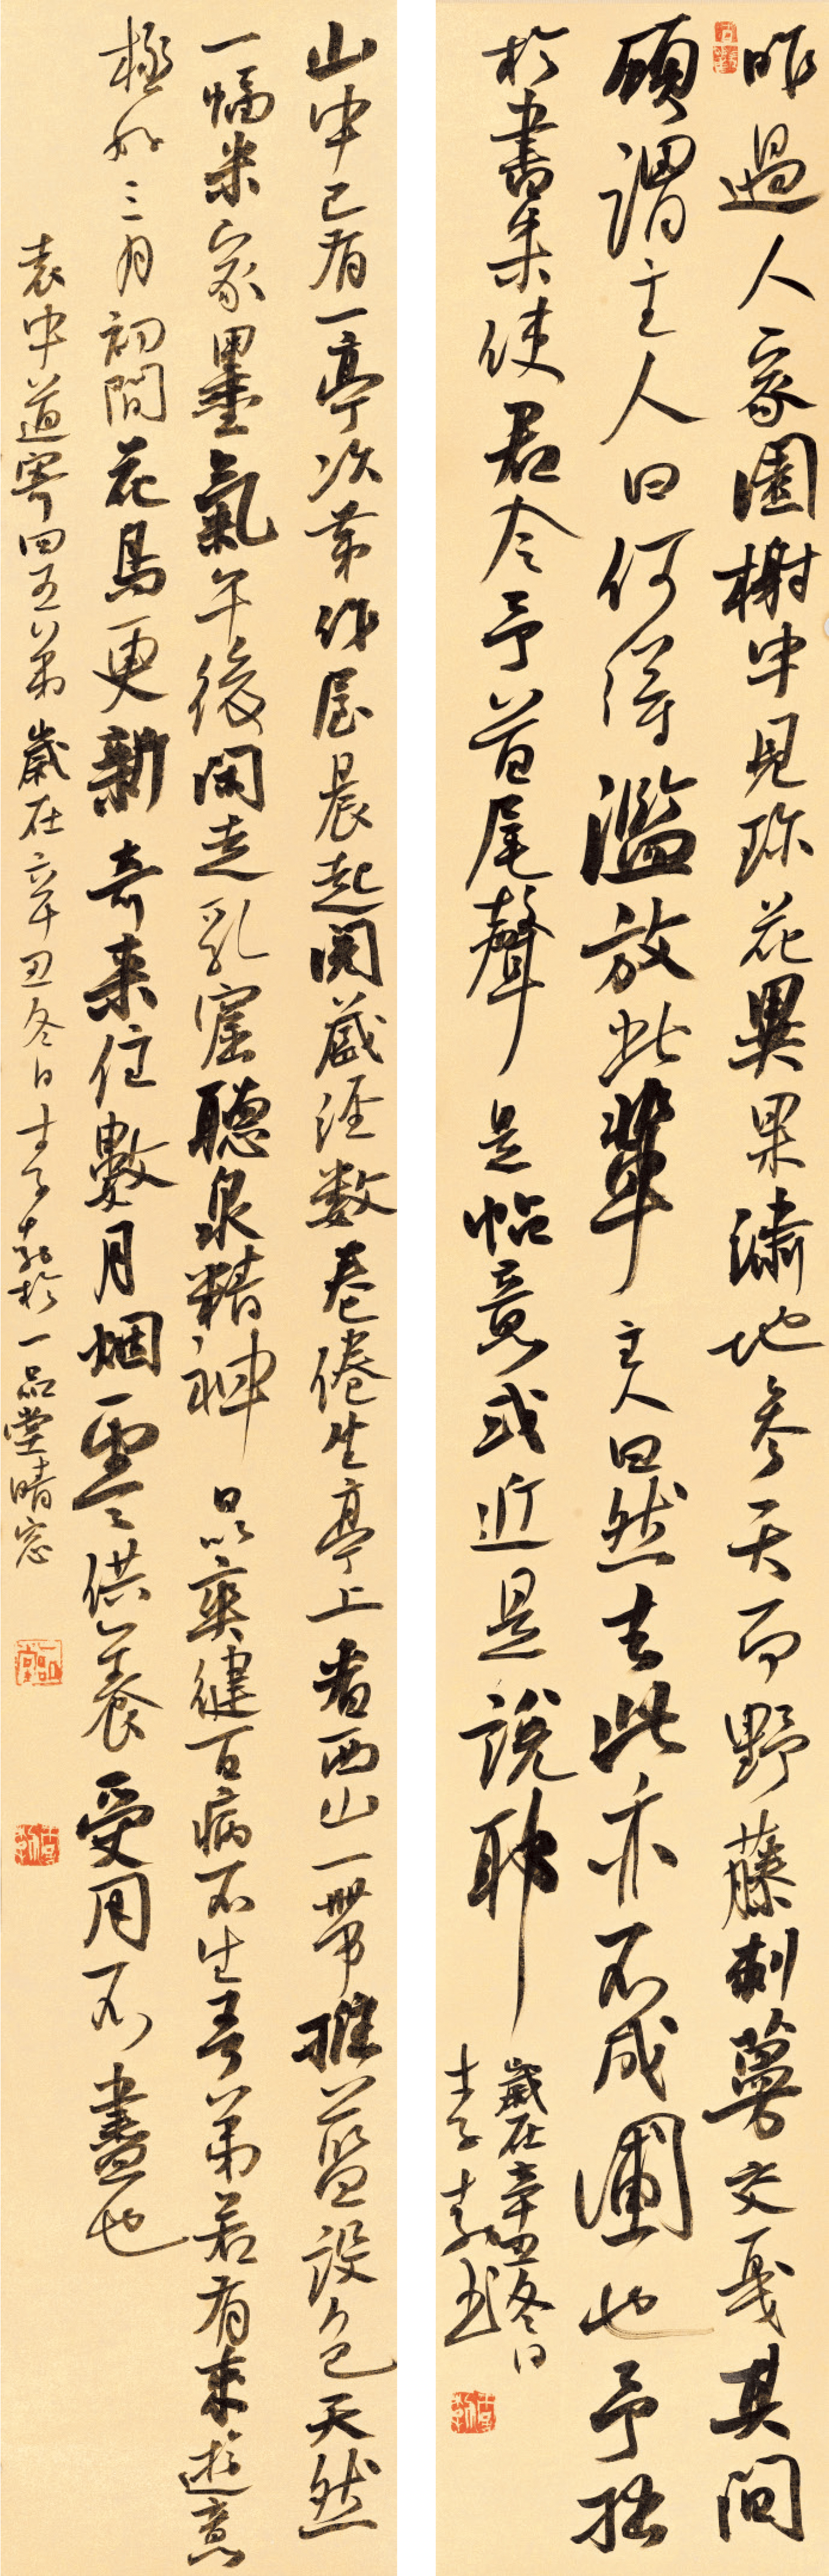 昨過人家園榭中見珍花異果繡地參天而野藤刺蔓交戛其間
顧謂主人曰何得濫放此輩主人曰然去此亦不成圃也予拙
於書朱使君令予首尾聲是帖意或近是說耶
歲在辛丑冬日
士子書
山中已有一亭次第作屋晨起閱藏經數卷倦坐亭上看西山一帶堆藍設色天然
一幅米家墨氣午後閑走乳窟聽泉精神日以爽健百病不生吾弟若有來遊意
極好三月初間花鳥更新奇來住數月烟雲供養受用不盡也
袁中道寄四五弟歲在辛丑冬日士子於一品堂晴窓